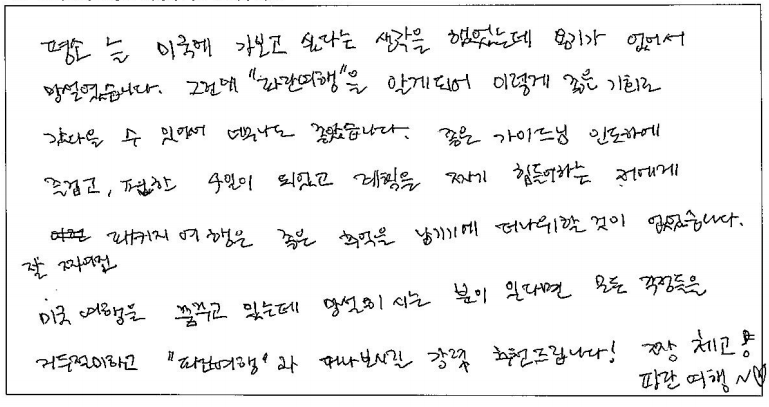 평소 늘 미국에 가보고 싶다는 생각을 했었는데 용기가 없어서
망설였습니다. 그런데 "파란여행"을 알게되어 이렇게 좋은 기회로
갔다올 수 있어서 너무나도 좋았습니다. 좋은 가이드님 인도하에
즐겁고, 편한 4일이 되었고 계획을 짜기 힘들어하는 저에게
패키지 여행은 좋은 추억을 남기기에 더나위할 것이 없었습니다.
잘 짜여진
미국 여행을 꿈꾸고 있는데 망설이시는 분이 있다면 모든 걱정들을
거두절미하고 "파란여행"과 떠나보시길 강력 추천드립니다! 짱 체고
파란 여행 ~♡